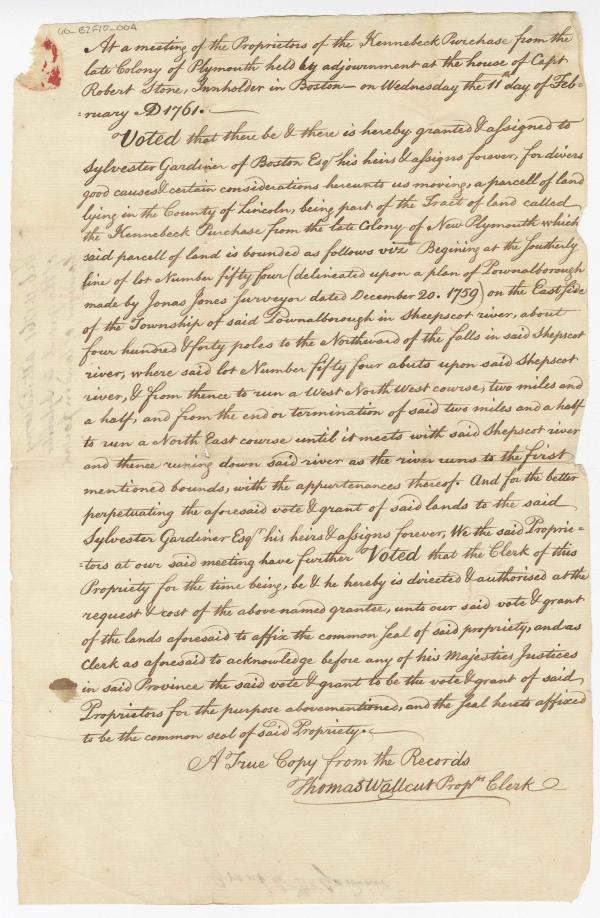 60-B2F10-00A
At a meeting of the Proprietors of the Kennebeck Purchase from the
late Colony of Plymouth held by adjournment at the house of Capt
Robert Stone, Innholder in Boston on Wednesday the 11th day of Feb-
-ruary AD 1761.
Voted that there be & there is hereby granted & assigned to
Sylvester Gardiner of Boston Esqr his heirs & assigns forever, for divers
good causes & certain considerations hereunto us moving, a parcell of land
lying in the County of Lincoln, being part of the Tract of land called
the Kennebeck Purchase from the late Colony of New Plymouth which
said parcell of land is bounded as follows vizt Begining at the Southerly
line of lot Number fifty four (delineated upon a plan of Pownalborough
made by Jonas Jones Surveyor dated December 20. 1759) on the East side
of the Township of said Pownalborough in Sheepscot river, about
four hundred & forty poles to the Northward of the falls in said Shepscot
river, where said lot Number fifty four abuts upon said Shepscot
river, & from thence to run a West North West course, two miles and
a half, and from the end or termination of said two miles and a half
to run a North East course until it meets with said Shepscot river
and thence runing down said river as the river runs to the first
mentioned bounds, with the appurtenances thereof. And for the better
perpetuating the aforesaid vote & grant of said lands to the said
Sylvester Gardiner Esqr his heirs & assigns forever, We the said Proprie-
-tors at our said meeting have further Voted that the Clerk of this
Propriety for the time being, be & he hereby is directed & authorised at the
request & cost of the above named grantee, unto our said vote & grant
of the lands aforesaid to affix the common seal of said propriety, and as
Clerk as aforesaid to acknowledge before any of his Majesties Justices
in said Province the said vote & grant to be the vote & grant of said
Proprietors for the purpose abovementioned, and the Seal hereto affixed
to be the common seal of said Propriety.
A True Copy from the Records
Thomas Wallcut Proprs Clerk